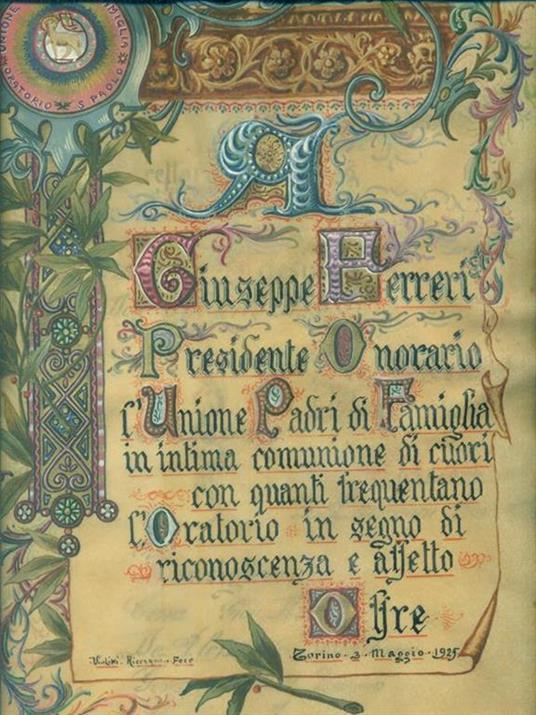 UNIONE FAMIGLIA
ORATORIO S PAOLO
A
Giuseppe Ferreri
Presidente Onorario
l'Unione Padri di Famiglia
in intima comunione di cuori
con quanti frequentano
l'Oratorio in segno di
riconoscenza e affetto
Offre
Fece
Torino - 3 - Maggio - 1925